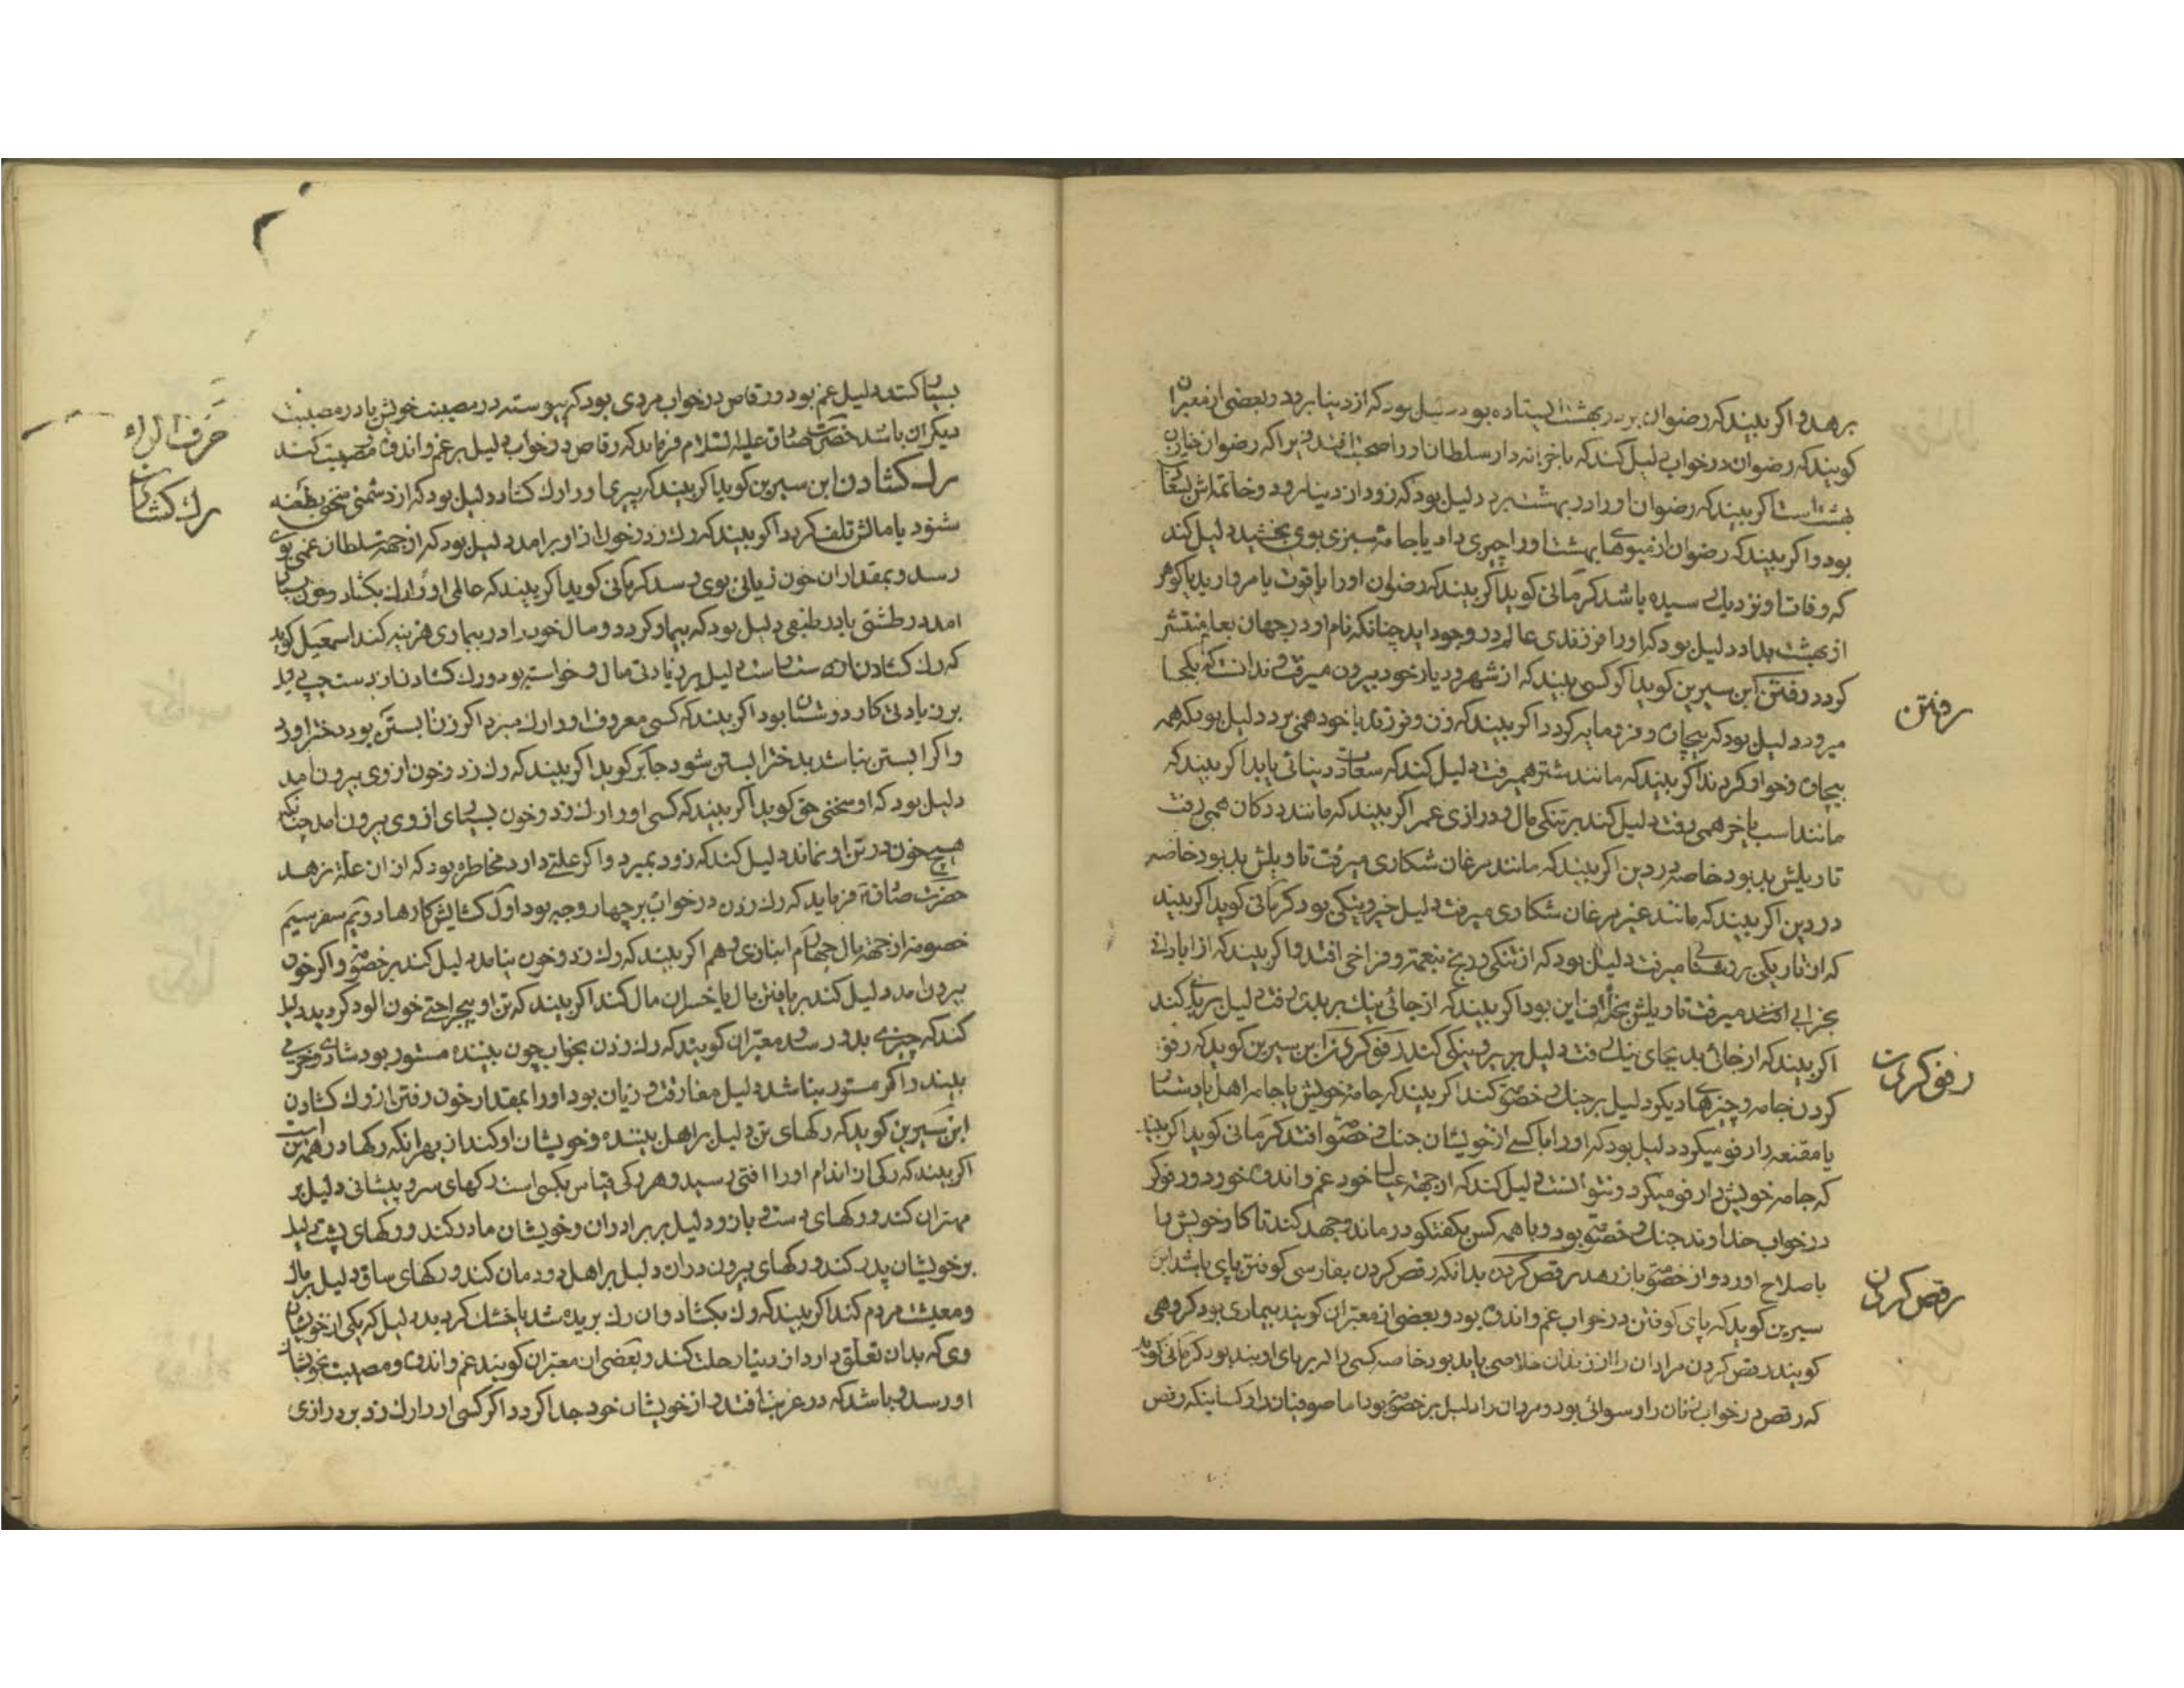 برهد و اکر بیند که رضوان بر در بهشت ایستاده بود دلیل بود که از دنیا برود و بعضی از معبران
کویند که رضوان در خواب دلیل کند که با خزانه دار سلطان او را صحبت افتد زیرا که رضوان خازن
بهشت است اکر بیند که رضوان او را در بهشت برد دلیل بود که زود از دنیا رود و خاتمتش
بود و اکر بیند که رضوان از میوهای بهشت او را چیزی داد یا جامه سبزی بوی بخشید دلیل کند
که وفات او نزدیک رسیده باشد کرمانی کوید اکر بیند که رضوان او را یاقوت یا مروارید یا کوهر
از بهشت بداد دلیل بود که او را فرزندی عالم در وجود اید چنانکه نام او در جهان بعلم منتشر
کردد رفتن ابن سیرین کوید اکر کسی بیند که از شهر و دیار خود بیرون میرفت و ندانست که بکجا
میرود دلیل بود که بیچاره و فرومایه کردد اکر بیند که زن و فرزند با خود همی برد دلیل بود که همه
بیچاره و خوار کردند اکر بیند که مانند شتر همیرفت دلیل کند که سعادت دنیائی یابد اکر بیند که
مانند اسب یا خر همی رفت دلیل کند بر تنکی مال و درازی عمر اکر بیند که مانند ددکان همی رفت
تاویلش بد بود خاصه در دین اکر بیند که مانند مرغان شکاری میرفت تاویلش بد بود خاصه
در دین اکر بیند که مانند غیر مرغان شکاری میرفت دلیل خیر و نیکی بود کرمانی کوید اکر بیند
که از تاریکی بروشنائی میرفت دلیل بود که از تنکی و رنج بنعمت و فراخی افتد و اکر بیند که از ابادانی
بخرابی میرفت تاویلش بخلاف این بود اکر بیند که از جائی نیک بر بدی رفت دلیل بر بدی کند
اکر بیند که از جائی بد بجای نیک رفت دلیل بر خیر و نیکی کند رفو کردن ابن سیرین کوید که رفو
کردن جامه و چیزهای دیکر دلیل بر جنک و خصومت کند اکر بیند که جامه خویش یا جامه اهل یا دستار
یا مقنعه را رفو میکرد دلیل بود که او را با کسی از خویشان جنک و خصومت افتد کرمانی کوید اکر بیند
که جامه خویش را رفو میکرد و نتوانست دلیل کند که از جهة عیال خود غم و اندوه خورد و رفوکر
در خواب خداوند جنک و خصومت بود و با همه کس بکفتکو درماند و جهد کند تا کار خویش را
باصلاح اورد و از خصومت باز رهد رقص کردن بدانکه رقص کردن بفارسی کوفتن پای باشد ابن
سیرین کوید که پای کوفتن در خواب غم و اندوه بود و بعضی از معبران کویند بیماری بود کروهی
کویند رقص کردن مردان را از زندان خلاصی یابد بود خاصه کسی را که بر پای او بند بود کرمانی کوید
که رقص در خواب زنان را رسوائی بود و مردان را دلیل بر خصومت بود اما صوفیان را و کسانیکه رقص
رفتن
رفو کردن
رقص کردن
دلیل غم بود و رقاص در خواب مردی بود که پیوسته در مصیبت خویش یا در مصیبت
دیکران باشد حضرت صادق علیه السلام فرماید که رقاص در خواب دلیل بر غم و اندوه و مصیبت کند
رک کشادن ابن سیرین کوید اکر بیند که پیری او را رک کشاد دلیل بود که از دشمنی سخنی بطعنه
شنود یا مالش تلف کردد اکر بیند که رک زد و خون از او برامد دلیل بود که از جهة سلطان غمی بوی
رسد و بمقدار ان خون زیانی بوی رسد کرمانی کوید اکر بیند که عالمی او را رک بکشاد و خون بسیار
امد در طشتی یا در طبقی دلیل بود که بیمار کردد و مال خود را در بیماری هزینه کند اسمعیل کوید
که رک کشادن از دست راست دلیل بر زیادتی مال و خواسته بود و رک کشادن از دست چپ دلیل
بر زیادتی کار دوستان بود اکر بیند که کسی معروف او را رک میزد اکر زن ابستن بود دختر اورد
و اکر ابستن نباشد بدختر ابستن شود جابر کوید اکر بیند که رک زد و خون از وی بیرون نامد
دلیل بود که او سخنی حق کوید اکر بیند که کسی او را رک زد و خون بسیار از وی بیرون امد چنانکه
هیچ خون در تن او نماند دلیل کند که زود بمیرد و اکر علتی دارد مخاطره بود که از ان علة نرهد
حضرت صادق فرماید که رک زدن در خواب بر چهار وجه بود اول کشایش کارها دویم سفر سیم
خصومة از جهة مال چهارم انبازی و هم اکر بیند که رک زد و خون نیامد دلیل کند بر خصومت و اکر خون
بیرون امد دلیل کند بر یافتن مال یا خسران مال کند اکر بیند که تن او بیجراحتی خون الود کردید دلیل
کند که چیزی بدو رسد و معبران کویند که رک زدن بخواب چون بیننده مستور بود شادی و خرمی
بیند و اکر مستور نباشد دلیل مفارقت و زیان بود او را بمقدار خون رفتن از رک کشادن
ابن سیرین کوید که رکهای تن دلیل بر اهل بیننده و خویشان او کند از بهر انکه رکها در همه تن است
اکر بیند که رکی از اندام او را افتی رسید و هر رکی قیاس بکسی است رکهای سر و پیشانی دلیل بر
مهتران کند و رکهای دست و بازو دلیل بر برادران و خویشان مادر کند و رکهای پشت دلیل
بر خویشان پدر کند و رکهای بیرون ران دلیل بر اهل دودمان کند و رکهای ساق دلیل بر مال
و معیشت مردم کند اکر بیند که رک بکشاد و ان رک بریده شد یا خشک کردید دلیل که یکی از خویشان
وی که بدان تعلق دارد از دنیا رحلت کند و بعضی از معبران کویند غم و اندوه و مصیبت بخویشان
او رسد و باشد که در غربت افتد و از خویشان خود جدا کردد اکر کسی او را رک زد بر درازی
حرف الراء
رک کشادن